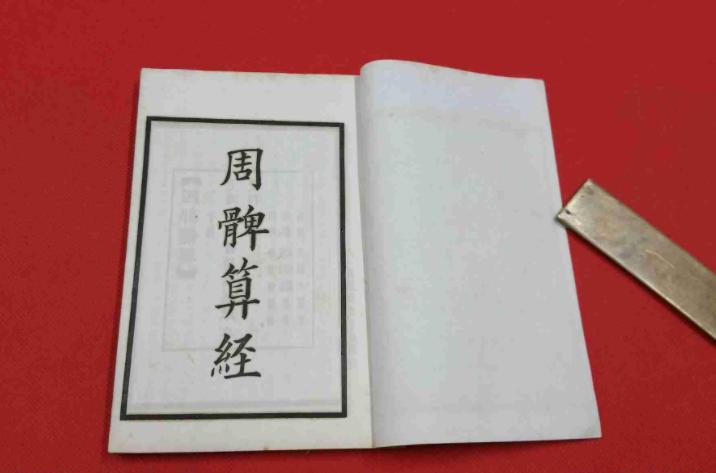 周髀算経